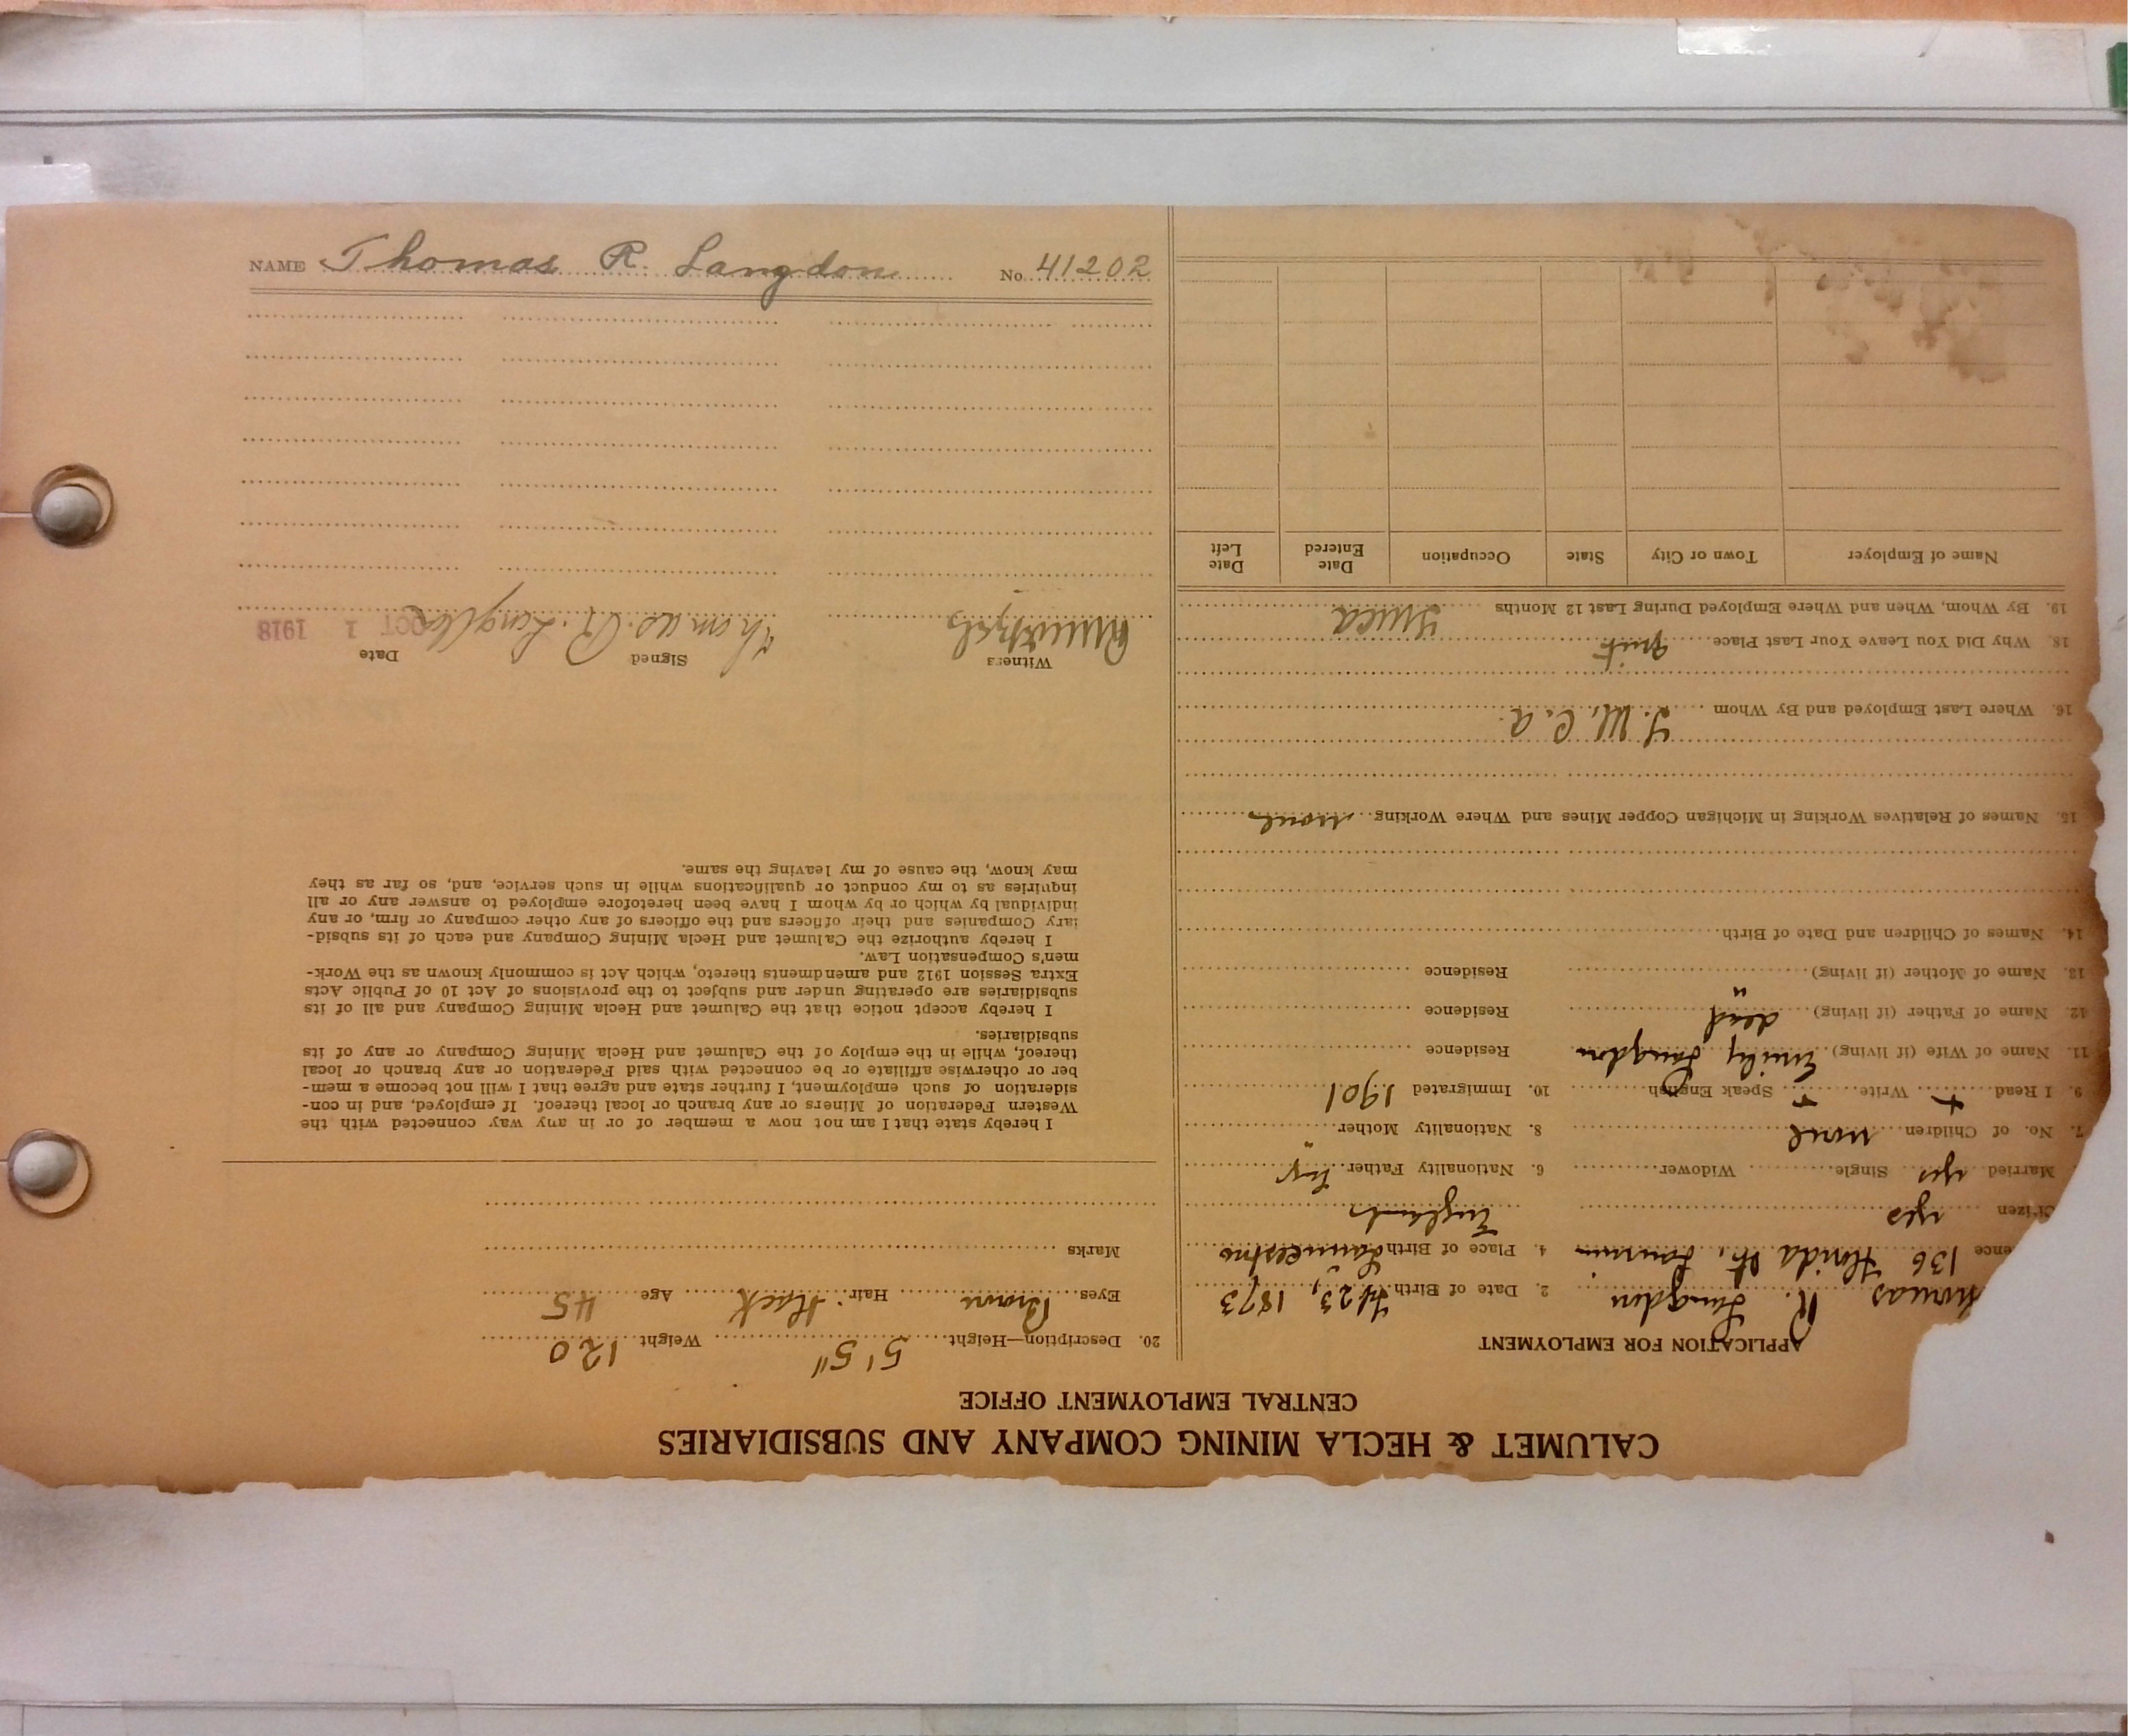 CALUMET & HECLA MINING COMPANY AND SUBSIDIARIES
CENTRAL EMPLOYMENT OFFICE
APPLICATION FOR EMPLOYMENT
Thomas R. Langdon 2. Date of Birth 23, 1873
ence 136 Florida St., Laurium 4. Place of Birth Launceston
Citizen yes England
Married yes Single Widower 6. Nationality Father Eng
7. No. of Children none 8. Nationality Mother "
9. I Read + Write + Speak English 10. Immigrated 1901
11. Name of Wife (if living) Emily Langdon Residence
12. Name of Father (if living) dead Residence
13. Name of Mother (if living) " Residence
14. Names of Children and Date of Birth
15. Names of Relatives Working in Michigan Copper Mines and Where Working none
16. Where Last Employed and By Whom Y. M. C. A.
18. Why Did You Leave Your Last Place quit
19. By Whom, When and Where Employed During Last 12 Months Ymca
Name of Employer Town or City State Occupation Date Entered Date Left
20. Description—Height 5' 5" Weight 120
Eyes Brown Hair Black Age 45
Marks
I hereby state that I am not now a member of or in any way connected with the
Western Federation of Miners or any branch or local thereof. If employed, and in con-
sideration of such employment, I further state and agree that I will not become a mem-
ber or otherwise affiliate or be connected with said Federation or any branch or local
thereof, while in the employ of the Calumet and Hecla Mining Company or any of its
subsidiaries.
I hereby accept notice that the Calumet and Hecla Mining Company and all of its
subsidiaries are operating under and subject to the provisions of Act 10 of Public Acts
Extra Session 1912 and amendments thereto, which Act is commonly known as the Work-
men's Compensation Law.
I hereby authorize the Calumet and Hecla Mining Company and each of its subsid-
iary Companies and their officers and the officers of any other company or firm, or any
individual by which or by whom I have been heretofore employed to answer any or all
inquiries as to my conduct or qualifications while in such service, and, so far as they
may know, the cause of my leaving the same.
Witness Signed Date
Thomas R. Langdon OCT 1 1918
NAME Thomas R. Langdon No. 41202